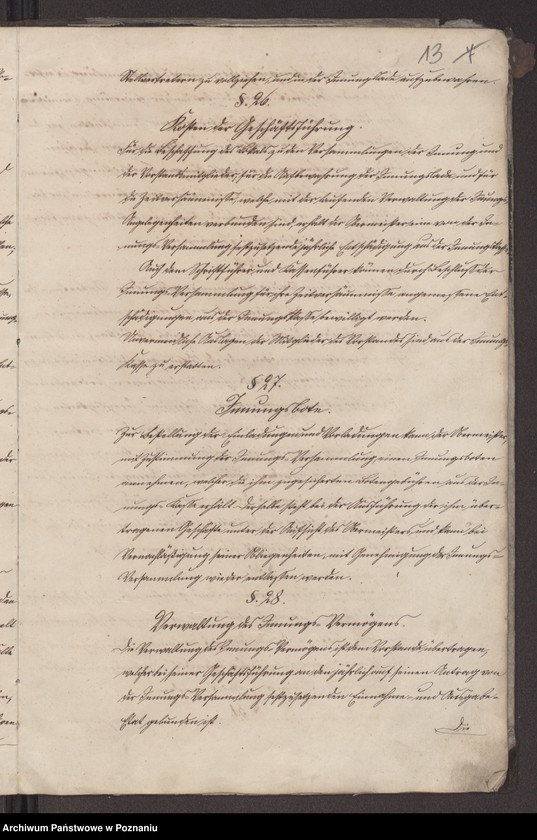 13
Stellvertretern zu vollziehen und in der Innungslade aufzubewahren.
§. 26.
Kosten der Geschäftsführung.
Für die Beschaffung des Lokals zu den Versammlungen der Innung und
der Vorstandsmitglieder, für die Aufbewahrung der Innungslade und für
die Zeitversäumnisse, welche mit der laufenden Verwaltung der Innungs-
Angelegenheiten verbunden sind, erhält der Obermeister eine von der In-
nungs-Versammlung festzusetzende jährliche Entschädigung aus der Innungskasse.
Auch dem Schriftführer und Kassenführer können durch Beschluß der
Innungs-Versammlung für ihre Zeitversäumnisse angemessene Ent-
schädigungen aus der Innungskasse bewilligt werden.
Unvermeidliche Auslagen der Mitglieder des Vorstandes sind aus der Innungs-
Kasse zu erstatten.
§ 27.
Innungsbote.
Zur Bestellung der Einladungen und Vorladungen kann der Obermeister
mit Zustimmung der Innungs-Versammlung einen Innungsboten
annehmen, welcher die ihm zugesicherten Botengebühren aus der In-
nungs-Kasse erhält. Derselbe steht bei der Ausführung der ihm über-
tragenen Geschäfte unter der Aufsicht des Obermeisters und kann bei
Vernachlässigung seiner Obliegenheiten, mit Genehmigung der Innungs-
Versammlung wieder entlassen werden.
§. 28.
Verwaltung des Innungs-Vermögens.
Die Verwaltung des Innungs-Vermögens ist dem Vorstande übertragen,
welcher bei seiner Geschäftsführung an den jährlich auf seinen Antrag von
der Innungs-Versammlung festzusetzenden Einnahme- und Ausgabe-
Etat gebunden ist.
Die
Archiwum Państwowe w Poznaniu